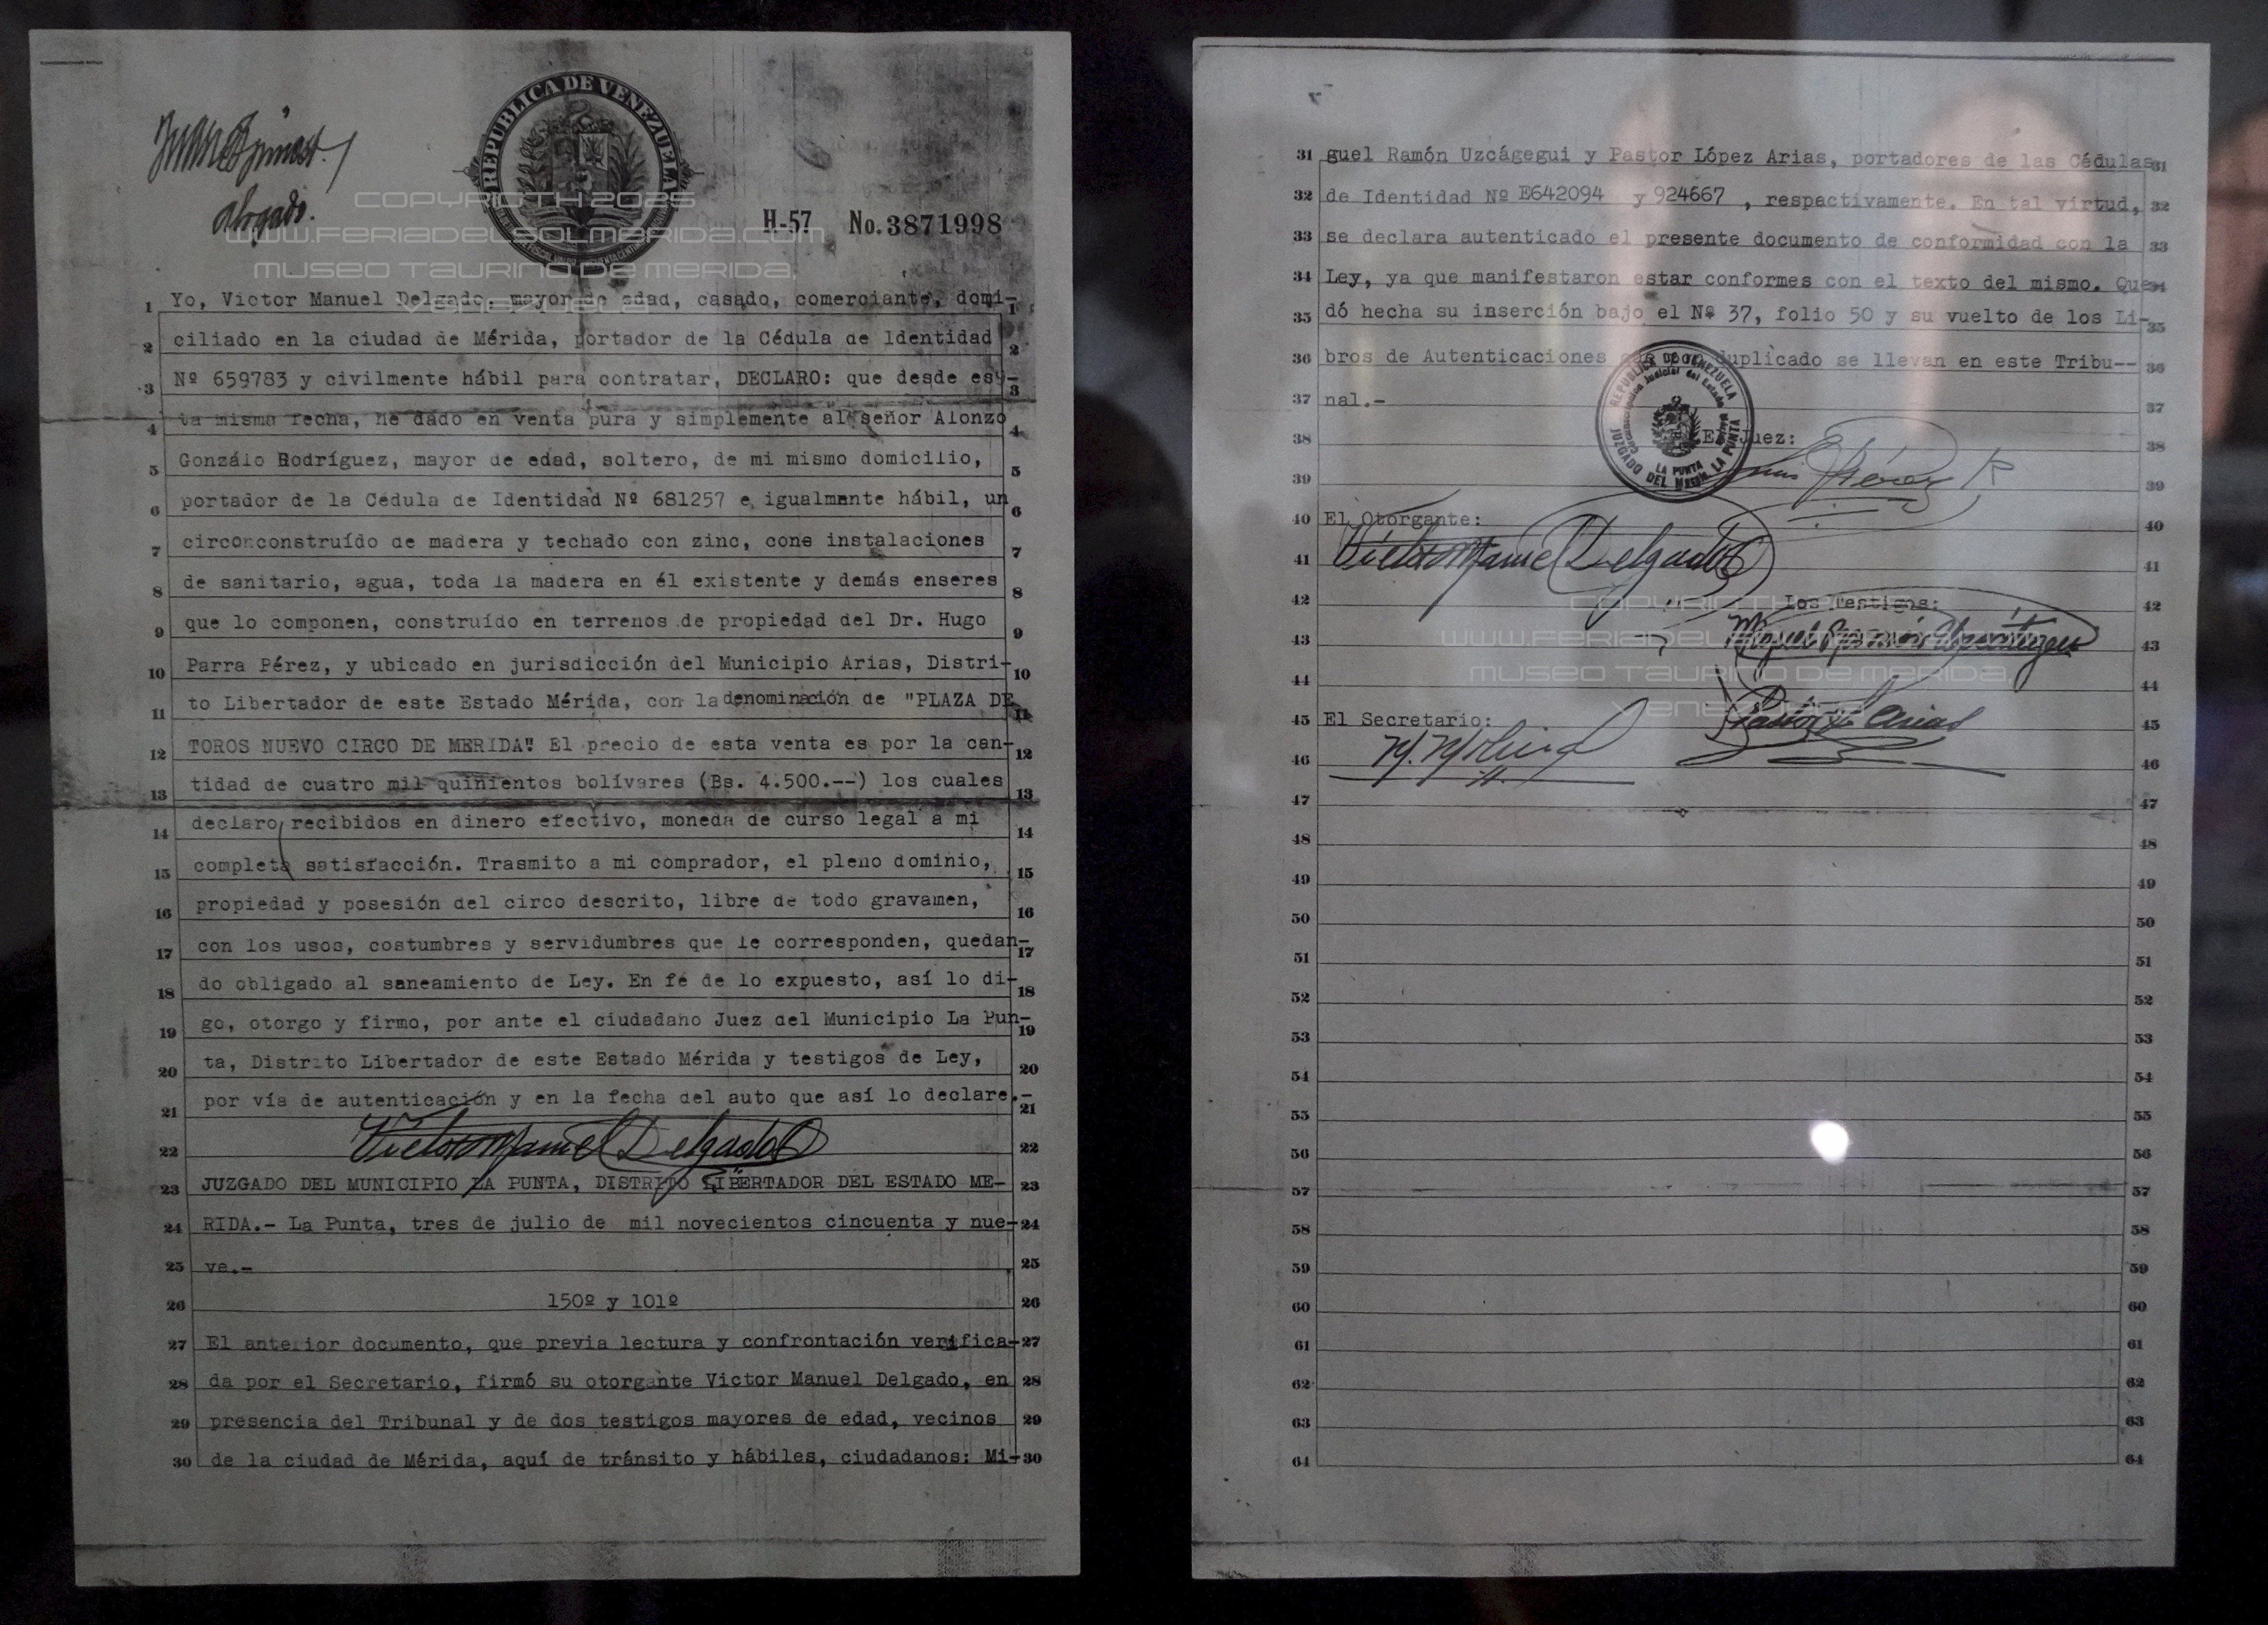 REPUBLICA DE VENEZUELA
abogado.
COPYRIGTH 2025
www.FERIADELSOLMERIDA.COM
MUSEO TAURINO DE MERIDA,
VENEZUELA
H-57 No. 3871998
1 Yo, Victor Manuel Delgado, mayor de edad, casado, comerciante, domi- 1
2 ciliado en la ciudad de Mérida, portador de la Cédula de Identidad 2
3 Nº 659783 y civilmente hábil para contratar, DECLARO: que desde es- 3
4 ta misma fecha, he dado en venta pura y simplemente al señor Alonzo 4
5 Gonzálo Rodríguez, mayor de edad, soltero, de mi mismo domicilio, 5
6 portador de la Cédula de Identidad Nº 681257 e igualmente hábil, un 6
7 circo construído de madera y techado con zinc, cons instalaciones 7
8 de sanitario, agua, toda la madera en él existente y demás enseres 8
9 que lo componen, construído en terrenos de propiedad del Dr. Hugo 9
10 Parra Pérez, y ubicado en jurisdicción del Municipio Arias, Distri- 10
11 to Libertador de este Estado Mérida, con la denominación de "PLAZA DE 11
12 TOROS NUEVO CIRCO DE MERIDA" El precio de esta venta es por la can- 12
13 tidad de cuatro mil quinientos bolívares (Bs. 4.500.--) los cuales 13
14 declaro recibidos en dinero efectivo, moneda de curso legal a mi 14
15 completa satisfacción. Trasmito a mi comprador, el pleno dominio, 15
16 propiedad y posesión del circo descrito, libre de todo gravamen, 16
17 con los usos, costumbres y servidumbres que le corresponden, quedan- 17
18 do obligado al saneamiento de Ley. En fé de lo expuesto, así lo di- 18
19 go, otorgo y firmo, por ante el ciudadano Juez del Municipio La Pun- 19
20 ta, Distrito Libertador de este Estado Mérida y testigos de Ley, 20
21 por vía de autenticación y en la fecha del auto que así lo declare.- 21
22 Victor Manuel Delgado 22
23 JUZGADO DEL MUNICIPIO LA PUNTA, DISTRITO LIBERTADOR DEL ESTADO ME- 23
24 RIDA.- La Punta, tres de julio de mil novecientos cincuenta y nue- 24
25 ve.- 25
26 150º y 101º 26
27 El anterior documento, que previa lectura y confrontación verifica- 27
28 da por el Secretario, firmó su otorgante Victor Manuel Delgado, en 28
29 presencia del Tribunal y de dos testigos mayores de edad, vecinos 29
30 de la ciudad de Mérida, aquí de tránsito y hábiles, ciudadanos: Mi- 30
31 guel Ramón Uzcágegui y Pastor López Arias, portadores de las Cédulas 31
32 de Identidad Nº E642094 y 924667 , respactivamente. En tal virtud, 32
33 se declara autenticado el presente documento de conformidad con la 33
34 Ley, ya que manifestaron estar conformes con el texto del mismo. Que- 34
35 dó hecha su inserción bajo el Nº 37, folio 50 y su vuelto de los Li- 35
36 bros de Autenticaciones que por duplicado se llevan en este Tribu-- 36
37 nal.- 37
REPUBLICA DE VENEZUELA
JUZGADO DEL MCPIO. LA PUNTA
LA PUNTA
38 El Juez: 38
39 Luis Pérez R 39
40 El Otorgante: 40
41 Victor Manuel Delgado 41
42 Los Testigos: 42
COPYRIGTH 2025
43 Miguel Ramón Uzcátegui 43
www.FERIADELSOLMERIDA.COM
MUSEO TAURINO DE MERIDA,
44 44
VENEZUELA
45 El Secretario: Pastor L. Arias 45
46 M. Molina 46
47 47
48 48
49 49
50 50
51 51
52 52
53 53
54 54
55 55
56 56
57 57
58 58
59 59
60 60
61 61
62 62
63 63
64 64